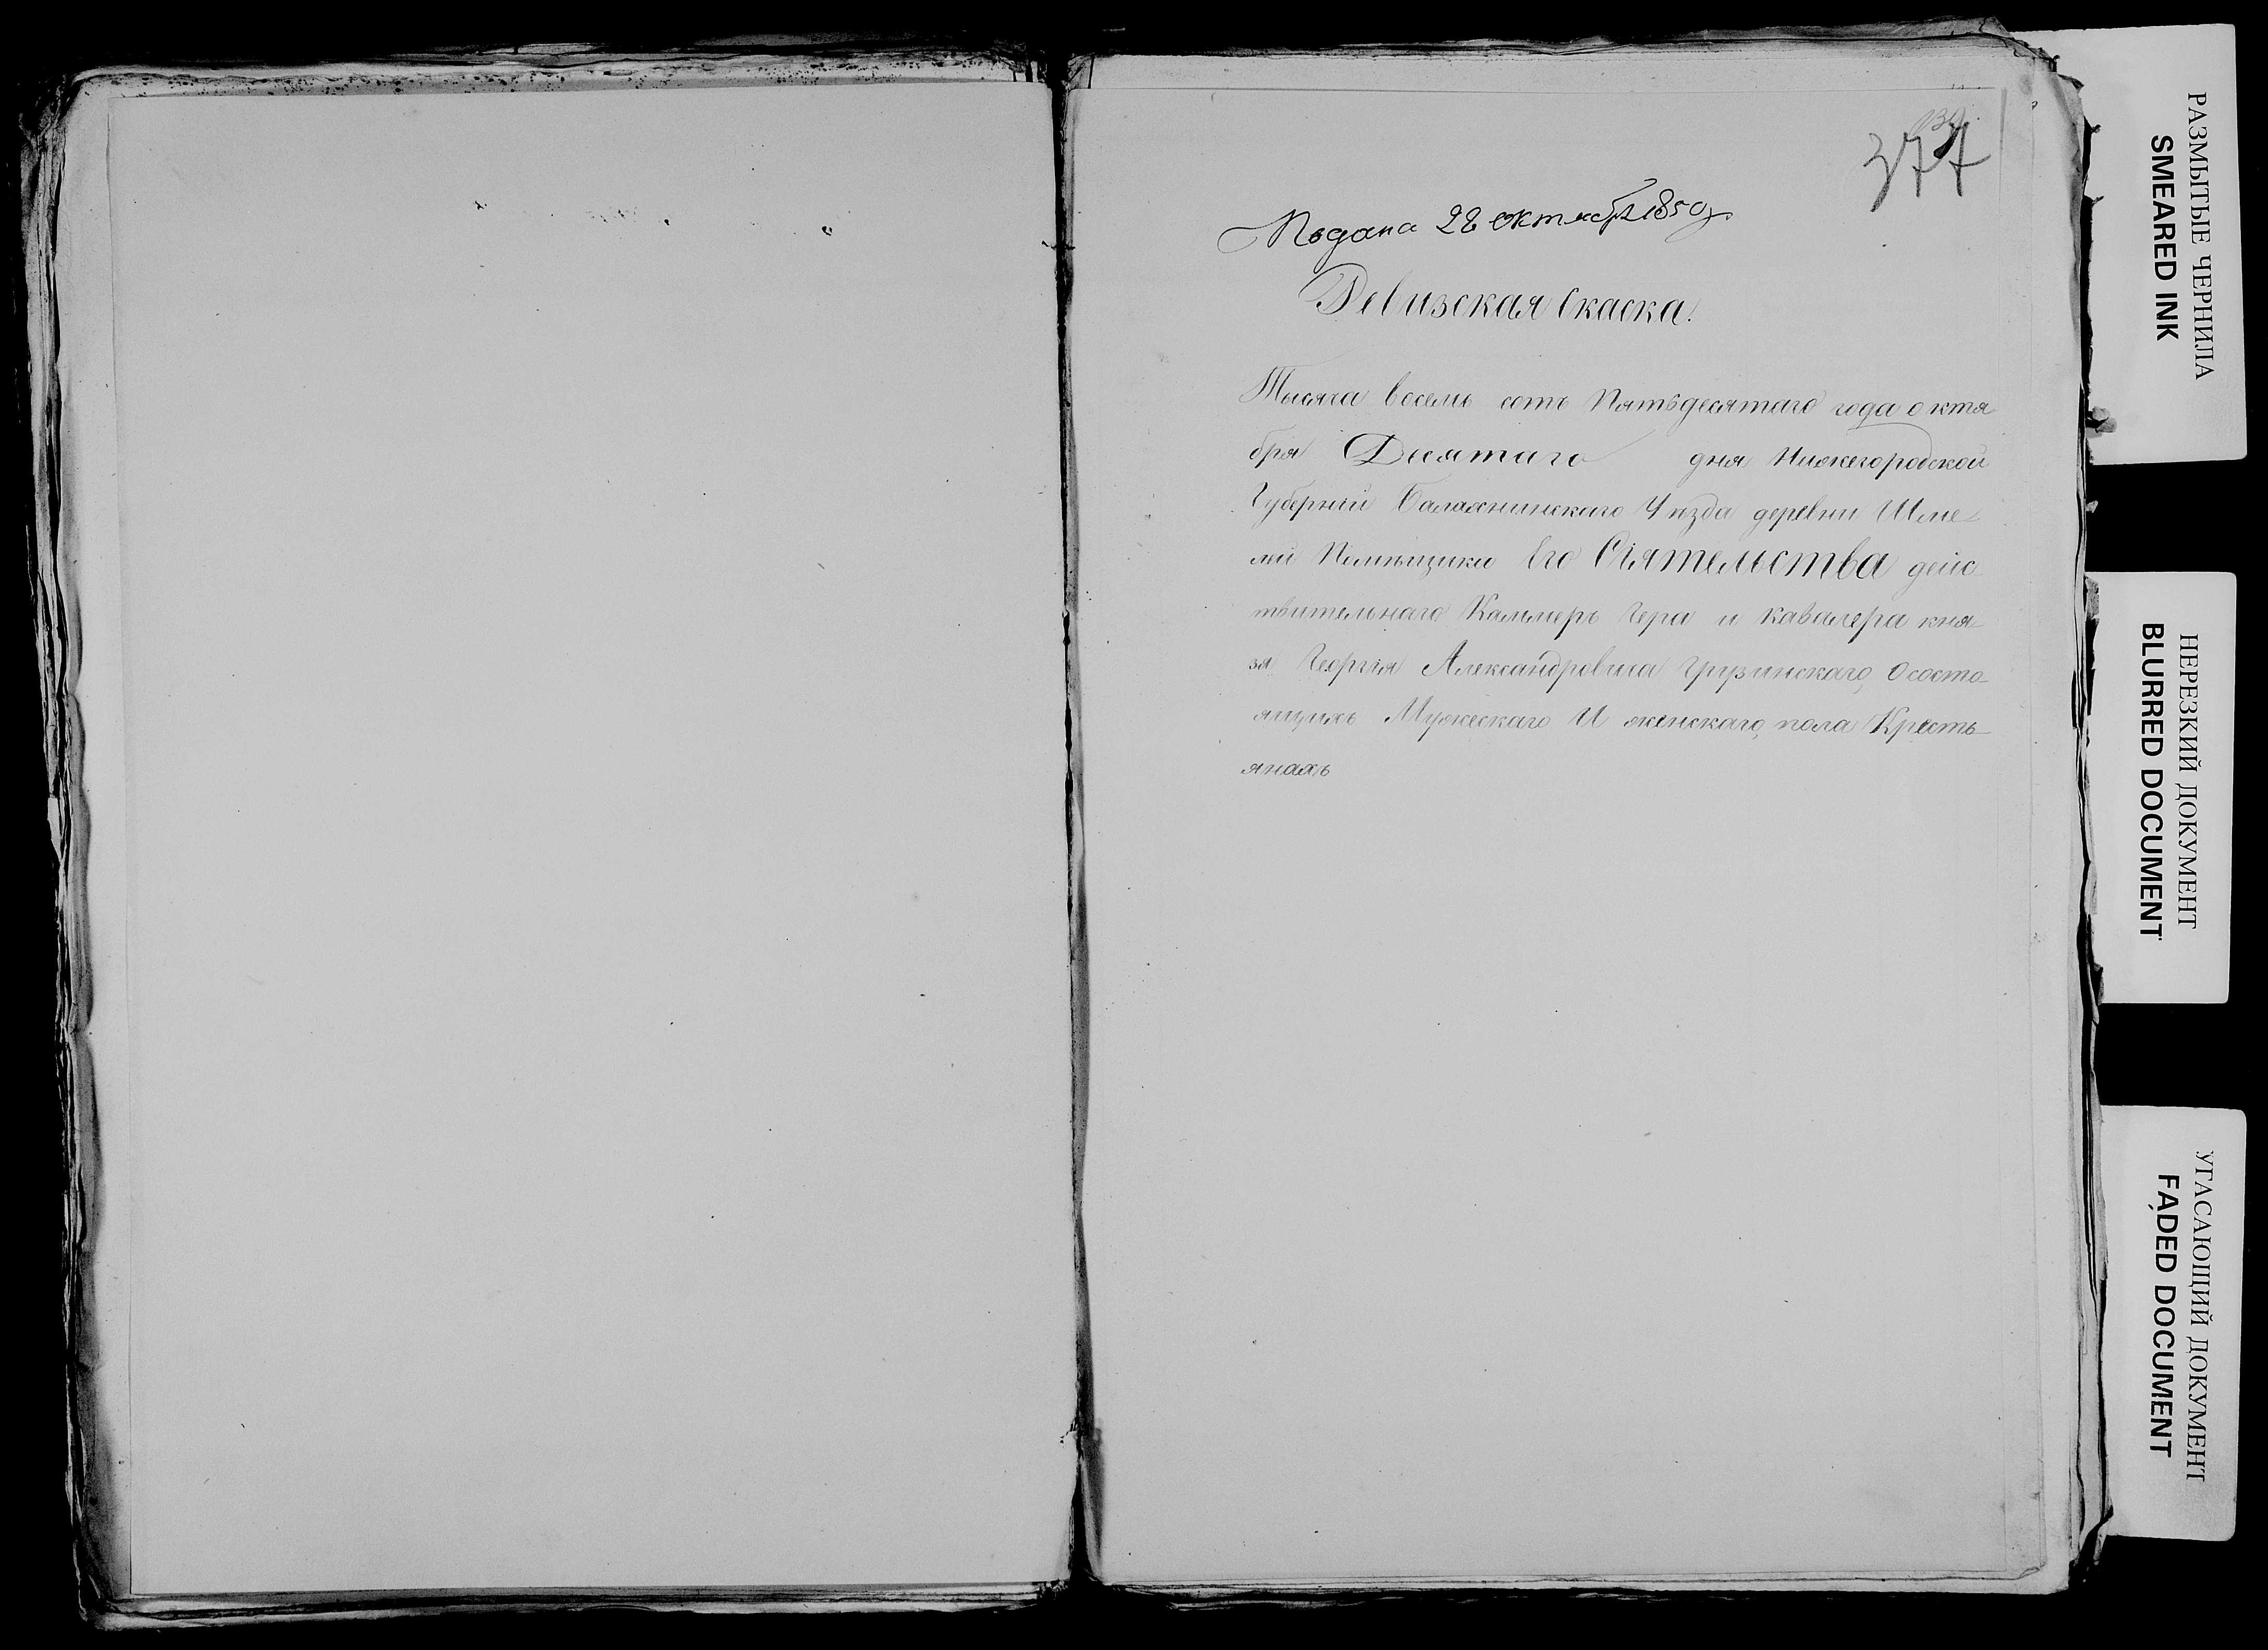 377
Подана 28 октября 1850 г.
Ревизская скаска.
Тысяча восемь сотъ Пятьдесятаго года октя
бря Десятаго дня Нижегородской
Губерніи Балахнинскаго Уѣзда деревни Шме-
лей Помѣщика Его Сіятельства дейс
твительнаго Каммеръ Гера и кавалера кня-
зя Георгія Александровича Грузинскаго, О состо-
ящихъ Мужескаго И женскаго пола Кресть-
янахъ
РАЗМЫТЫЕ ЧЕРНИЛА
SMEARED INK
НЕРЕЗКИЙ ДОКУМЕНТ
BLURRED DOCUMENT
УГАСАЮЩИЙ ДОКУМЕНТ
FADED DOCUMENT